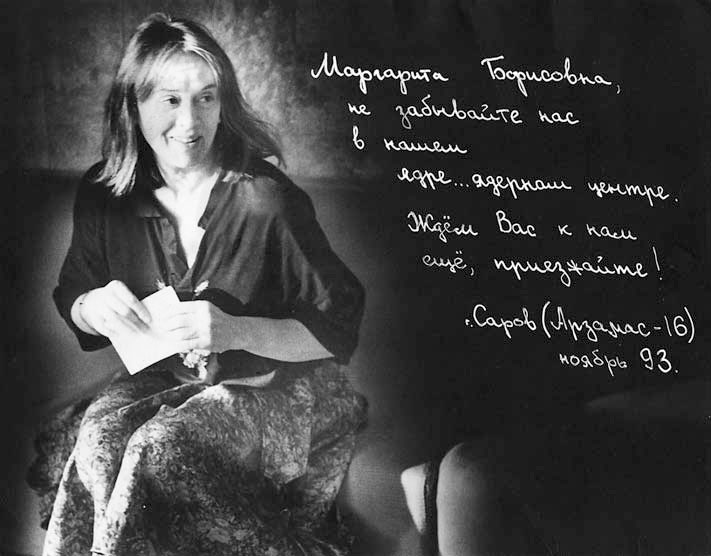 Маргарита Борисовна,
не забывайте нас
в нашем
ядре... ядерном центре.
Ждём Вас к нам
ещё, приезжайте!
г. Саров (Арзамас-16)
ноябрь 93.